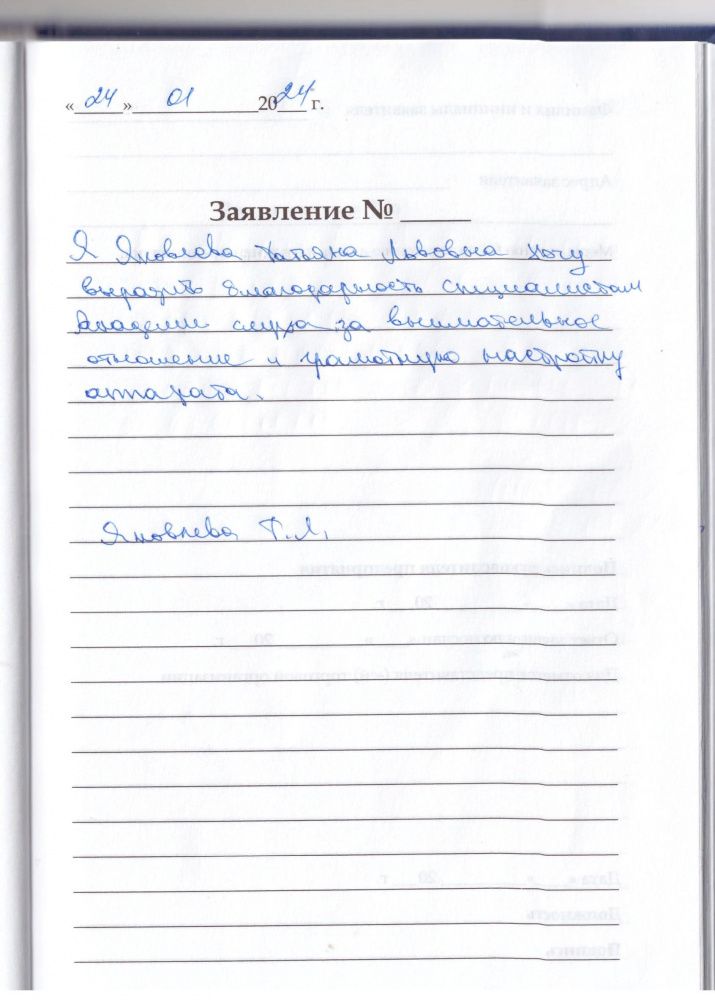 « 24 » 01 2024 г.
Заявление № _____
Я Яковлева Татьяна Львовна хочу
выразить благодарность специалистам
Академии слуха за внимательное
отношение и грамотную настройку
аппарата.
Яковлева Т.Л.